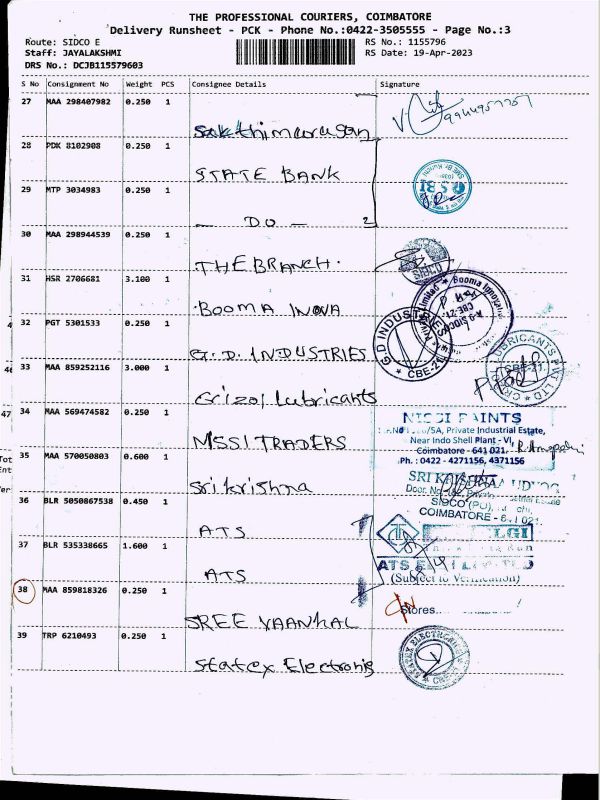 THE PROFESSIONAL COURIERS, COIMBATORE
Delivery Runsheet - PCK - Phone No.:0422-3505555 - Page No.:3
Route: SIDCO E
RS No.: 1155796
Staff: JAYALAKSHMI
RS Date: 19-Apr-2023
DRS No.: DCJB115579603
S No Consignment No Weight PCS Consignee Details Signature
27 MAA 298407982 0.250 1
Sakthimurugan
28 PDK 8102908 0.250 1
STATE BANK
29 MTP 3034983 0.250 1
SBI
- DO -
30 MAA 298944539 0.250 1
THE BRANCH.
SIDCO
31 HSR 2706681 3.100 1
BOOMA INOVA
32 PGT 5301533 0.250 1
G.D. INDUSTRIES
G.D INDUSTRIES
CBE-21
33 MAA 859252116 3.000 1
Grizol Lubricants
CBE-21.
34 MAA 569474582 0.250 1
MSSI TRADERS
NISSI PAINTS
Private Industrial Estate,
Near Indo Shell Plant - VI,
Coimbatore - 641 021.
Ph. : 0422 - 4271156, 4371156
35 MAA 570050803 0.600 1
Srikrishna
SRI KRISHNA
Door. No
SIDCO (PO),
COIMBATORE - 641 021.
36 BLR 5050867538 0.450 1
ATS
ELGI
37 BLR 535338665 1.600 1
ATS
ATS ELGI LIMITED
(Subject to Verification)
38 MAA 859818326 0.250 1
SREE VAANKAL
Stores
39 TRP 6210493 0.250 1
Statex Electronis
STATEX ELECTRONICS